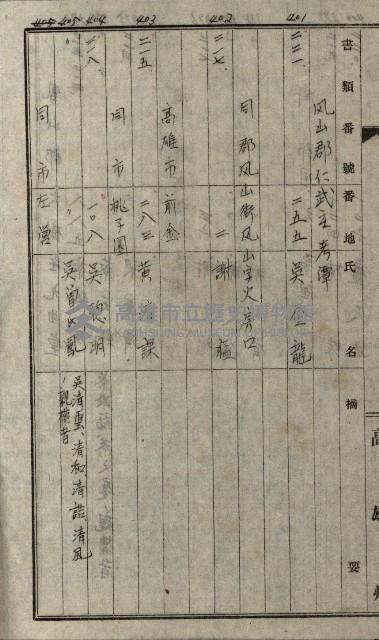 書類番號
番地
氏名
摘要
401
二二一
鳳山郡仁武庄考潭
二五五
吳金龍
402
二一七
同郡鳳山街鳳山字火房口
二
謝
403
二一五
高雄市前金
二八三
黃
課
404
二一八
同市桃子園
一〇八
吳
明
405
同市左營
吳曾氏
吳清雲、清和清誥、清風
ノ親權者
高雄州
高雄市立歷史博物館
KAOHSIUNG MUSEUM OF HISTORY